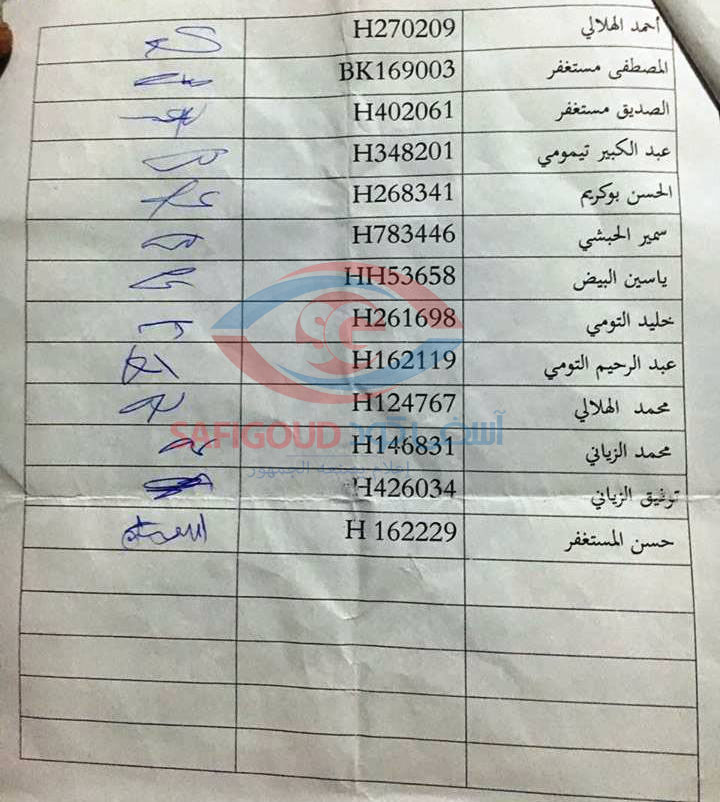 أحمد الهلالي H270209
المصطفى مستغفر BK169003
الصديق مستغفر H402061
عبد الكبير تيمومي H348201
الحسن بوكريم H268341
سمير الحبشي H783446
ياسين البيض HH53658
خليد التومي H261698
عبد الرحيم التومي H162119
محمد الهلالي H124767
SAFIGOUD آسفي كود
محمد الزياني H146831
إعلام يصنعه الجمهور
توفيق الزياني H426034
حسن المستغفر H 162229